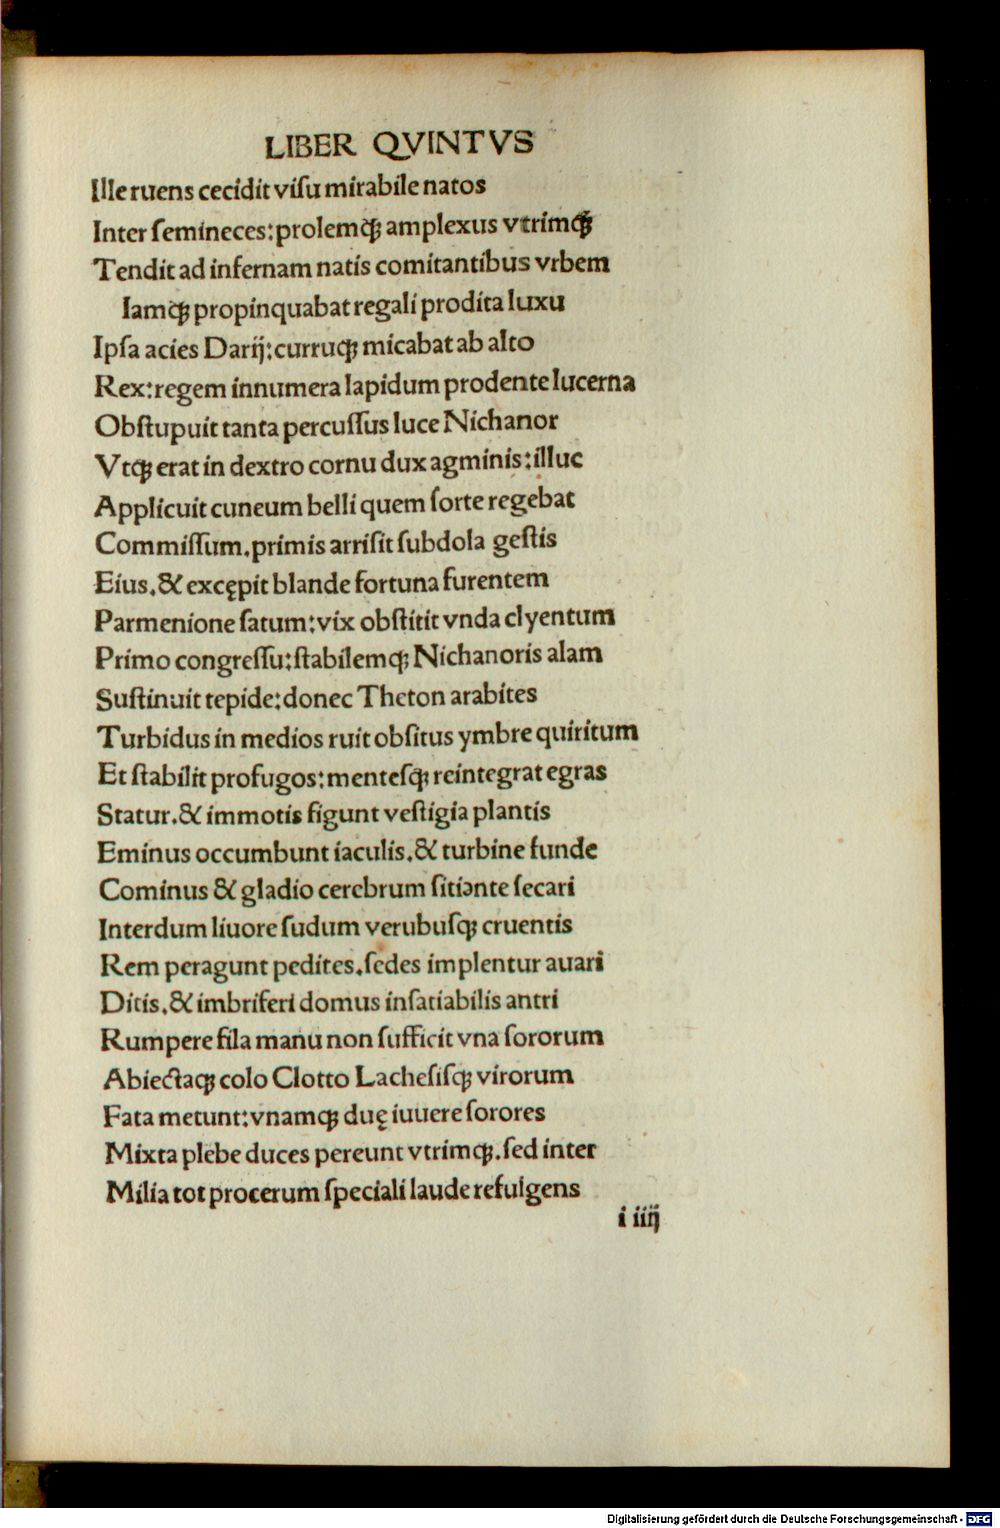 LIBER QVINTVS
Ille ruens cecidit viſu mirabile natos
Inter ſemineces: prolemqꝫ amplexus vtrimqꝫ
Tendit ad infernam natis comitantibus vrbem
Iamqꝫ propinquabat regali prodita luxu
Ipſa acies Darij: curruqꝫ micabat ab alto
Rex: regem innumera lapidum prodente lucerna
Obſtupuit tanta percuſſus luce Nichanor
Vtqꝫ erat in dextro cornu dux agminis: illuc
Applicuit cuneum belli quem ſorte regebat
Commiſſum. primis arriſit ſubdola geſtis
Eius. & excępit blande fortuna furentem
Parmenione ſatum: vix obſtitit vnda clyentum
Primo congreſſu: ſtabilemqꝫ Nichanoris alam
Suſtinuit tepide: donec Theton arabites
Turbidus in medios ruit obſitus ymbre quiritum
Et ſtabilit profugos: menteſqꝫ reintegrat egras
Statur. & immotis figunt veſtigia plantis
Eminus occumbunt iaculis. & turbine funde
Cominus & gladio cerebrum ſitiente ſecari
Interdum liuore ſudum verubuſqꝫ cruentis
Rem peragunt pedites. ſedes implentur auari
Ditis. & imbriferi domus inſatiabilis antri
Rumpere fila manu non ſufficit vna ſororum
Abiectaqꝫ colo Clotto Lacheſiſqꝫ virorum
Fata metunt: vnamqꝫ duę iuuere ſorores
Mixta plebe duces pereunt vtrimqꝫ. ſed inter
Milia tot procerum ſpeciali laude refulgens
i iiij
Digitalisierung gefördert durch die Deutsche Forschungsgemeinschaft - DFG